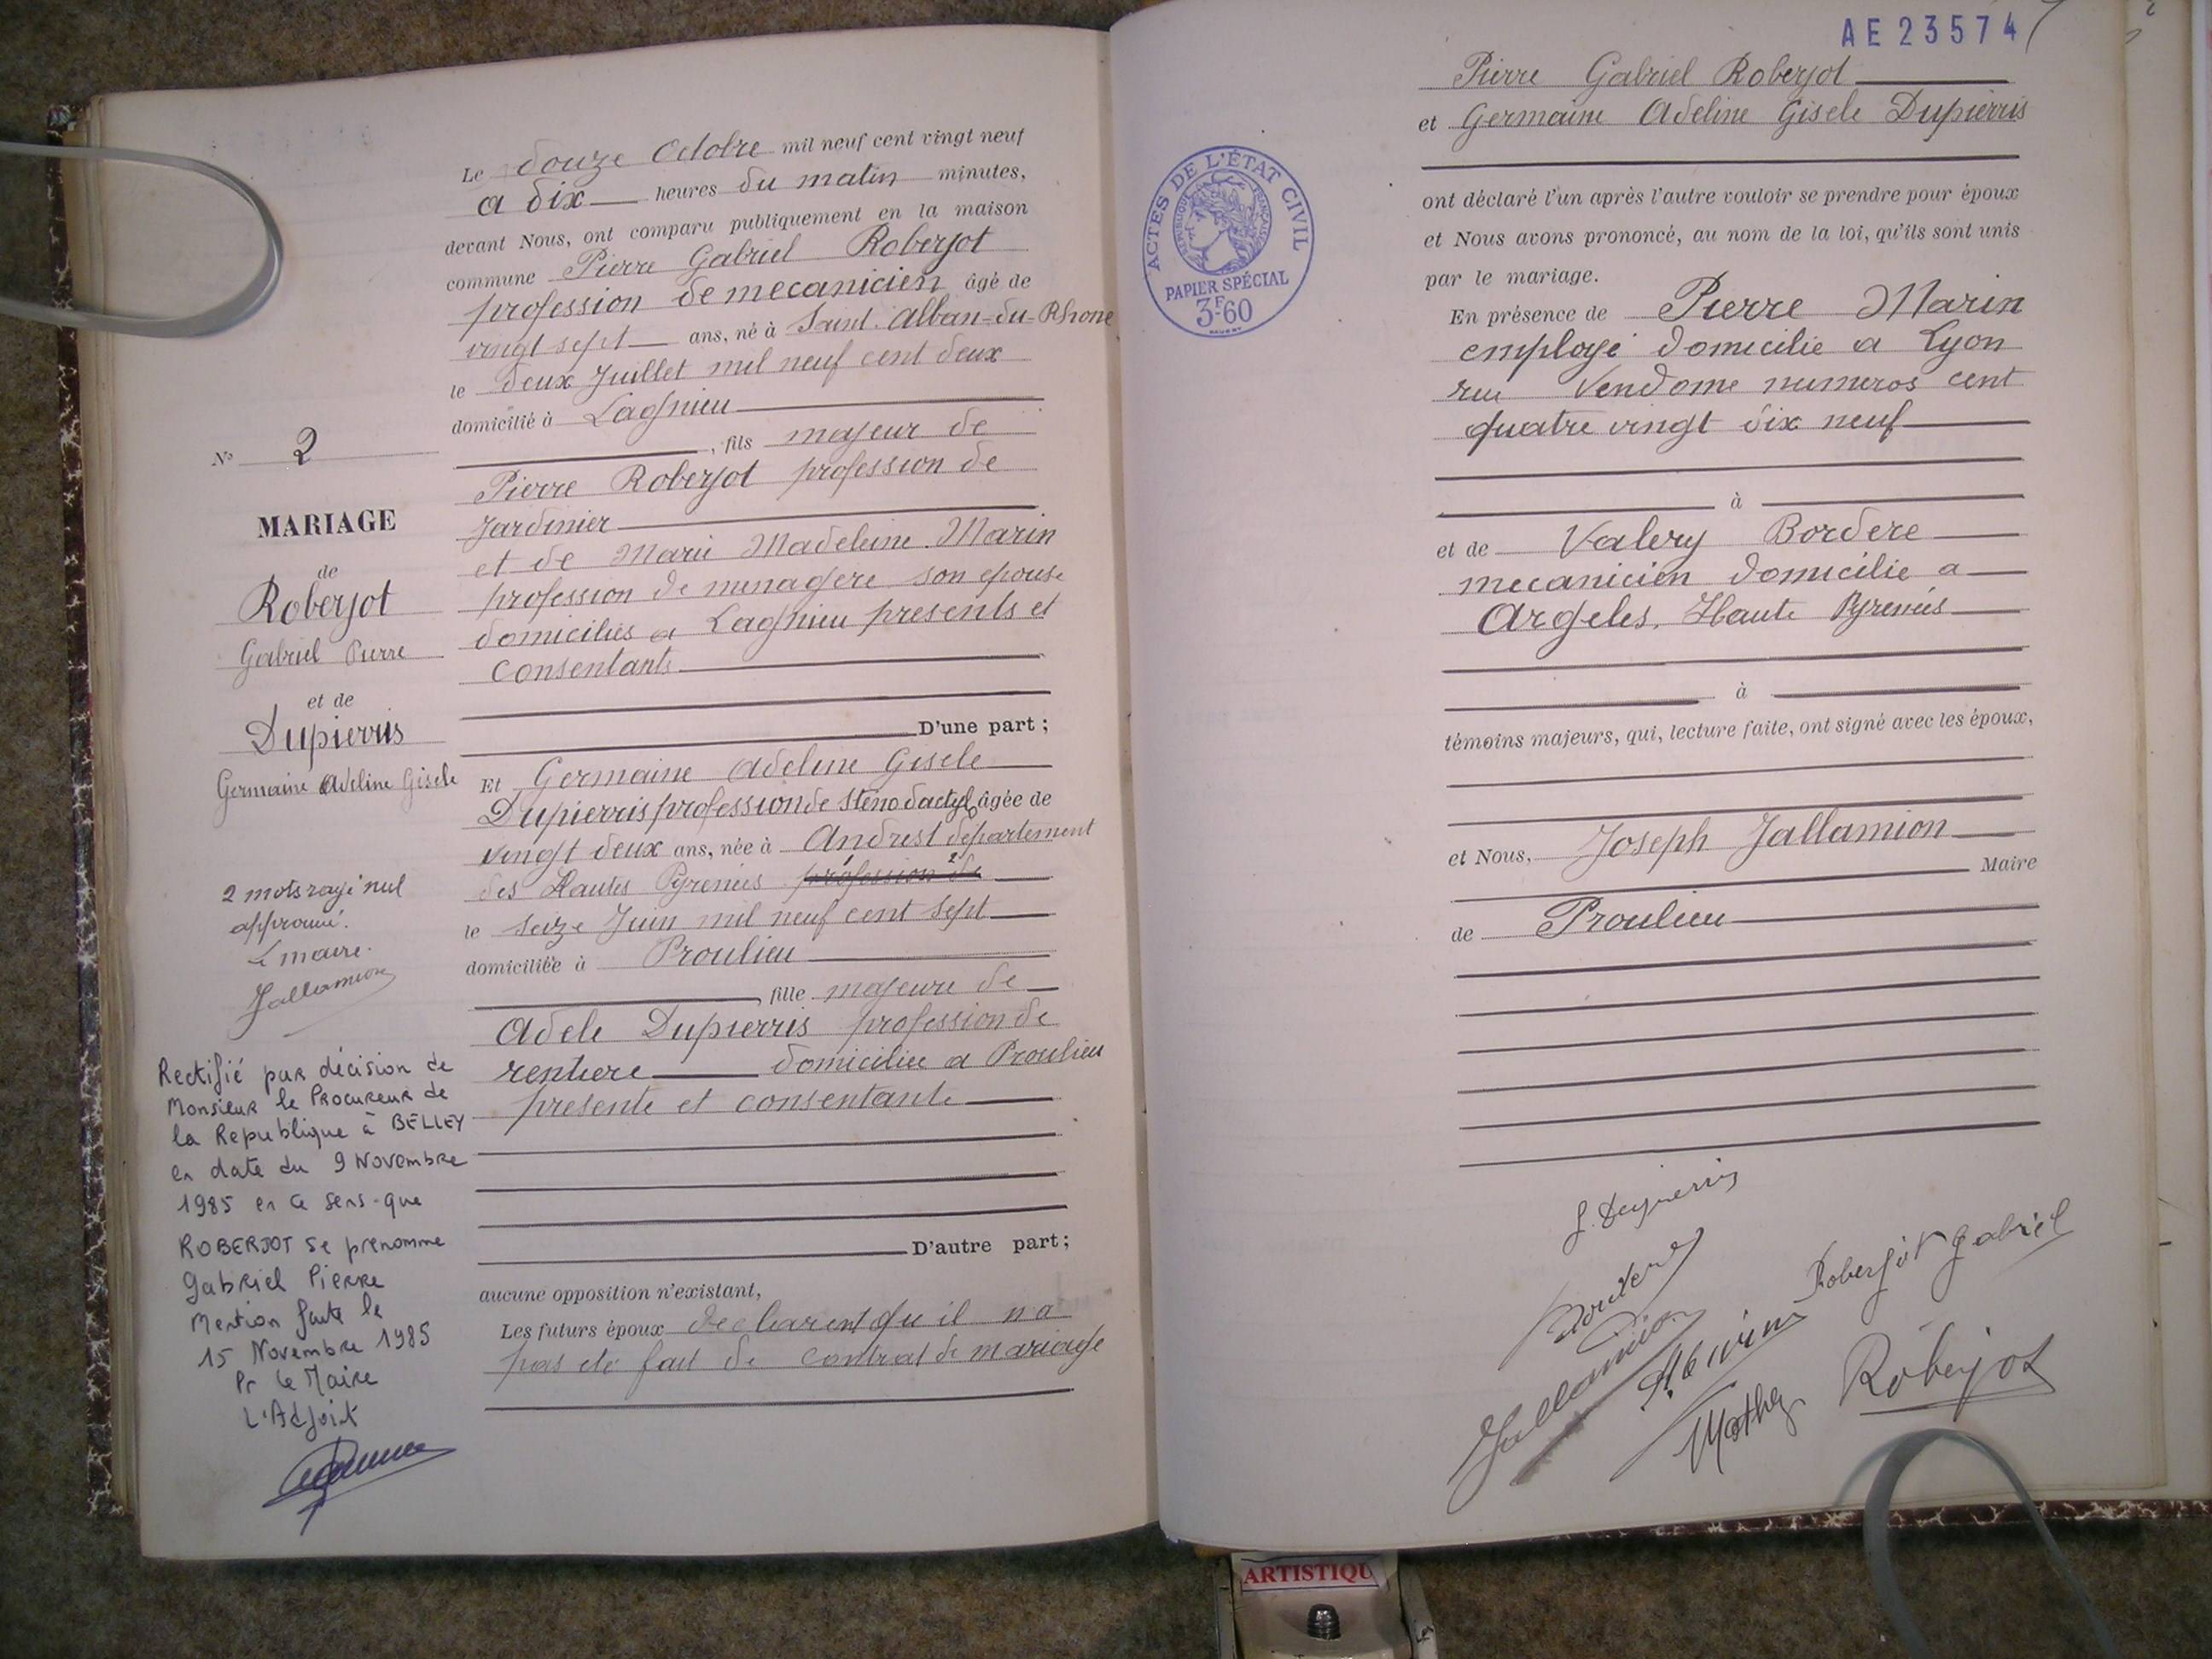 Le douze Octobre mil neuf cent vingt neuf
a dix heures du matin minutes,
devant Nous, ont comparu publiquement en la maison
commune Pierre Gabriel Roberjot
profession de mecanicien âgé de
vingt sept ans, né à Saint. Alban-du-Rhone
le deux Juillet mil neuf cent deux
domicilié à Lagnieu
, fils majeur de
Pierre Roberjot profession de
Jardinier
et de Marie Madeleine Marin
profession de menagere son epouse
domicilies a Lagnieu presents et
consentants
D'une part ;
Et Germaine Adeline Gisele
Dupierris profession de Sténo dactylo âgée de
vingt deux ans, née à Andrest département
des Hautes Pyrenées profession de
le seize Juin mil neuf cent sept
domiciliée à Proulieu
, fille majeure de
Adele Dupierris profession de
rentiere domiciliee a Proulieu
presente et consentante
D'autre part ;
aucune opposition n'existant,
Les futurs époux declarent qu il n a
pas été fait de contrat de mariage
N° 2
MARIAGE
de
Roberjot
Gabriel Pierre
et de
Dupierris
Germaine Adeline Gisele
2 mots rayé nul
approuvé.
Le maire.
Jallamion
Rectifié par décision de
Monsieur le Procureur de
la Republique à BELLEY
en date du 9 Novembre
1985 en ce sens que
ROBERJOT se prenomme
Gabriel Pierre
Mention faite le
15 Novembre 1985
Pr le Maire
L'Adjoint
AE 23574
Pierre Gabriel Roberjot
et Germaine Adeline Gisele Dupierris
ACTES DE L'ÉTAT CIVIL
RÉPUBLIQUE FRANÇAISE
PAPIER SPÉCIAL
3F.60
ont déclaré l'un après l'autre vouloir se prendre pour époux
et Nous avons prononcé, au nom de la loi, qu'ils sont unis
par le mariage.
En présence de Pierre Marin
employé domicilie a Lyon
rue Vendome numeros cent
quatre vingt dix neuf
à
et de Valery Bordere
mecanicien domicilie a
Argeles. Haute Pyrenées
à
témoins majeurs, qui, lecture faite, ont signé avec les époux,
et Nous, Joseph Jallamion
Maire
de Proulieu
G. Dupierris
Roberjot Gabriel
Jallamion
Roberjot
ARTISTIQU